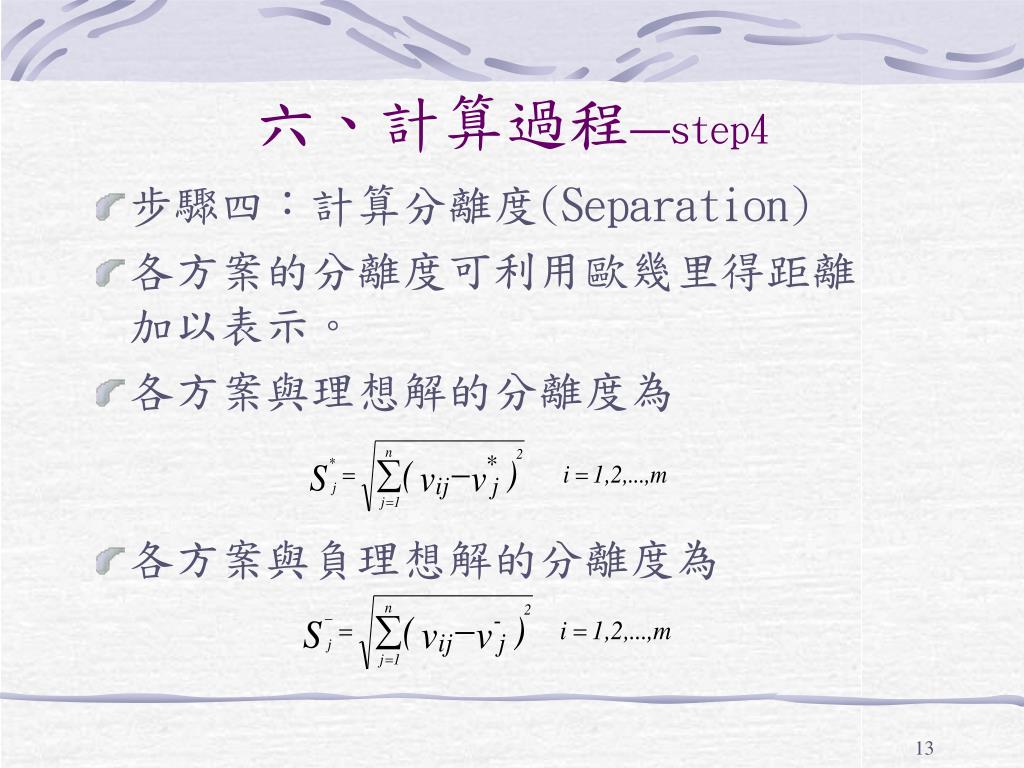 六、計算過程—step4
步驟四：計算分離度(Separation)
各方案的分離度可利用歐幾里得距離
加以表示。
各方案與理想解的分離度為
S*j = √ n∑j=1 ( vij − v*j )2 i = 1,2,...,m
各方案與負理想解的分離度為
S−j = √ n∑j=1 ( vij − v-j )2 i = 1,2,...,m
13